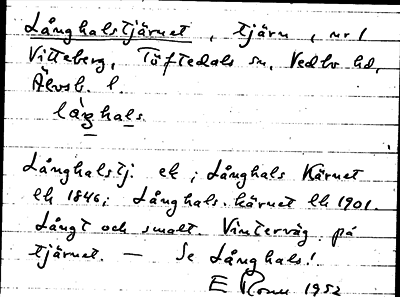 Långhalstjärnet, tjärn, nr 1
Vitteberg, Töftedals sn, Vedbo hd,
Älvsb. l.
låŋhals
Långhalstj. ek; Långhals Kärnet
lh 1846; Långhals. kärnet lh 1901.
Långt och smalt. Vinterväg på
tjärnet. — Se Långhals!
E 1952